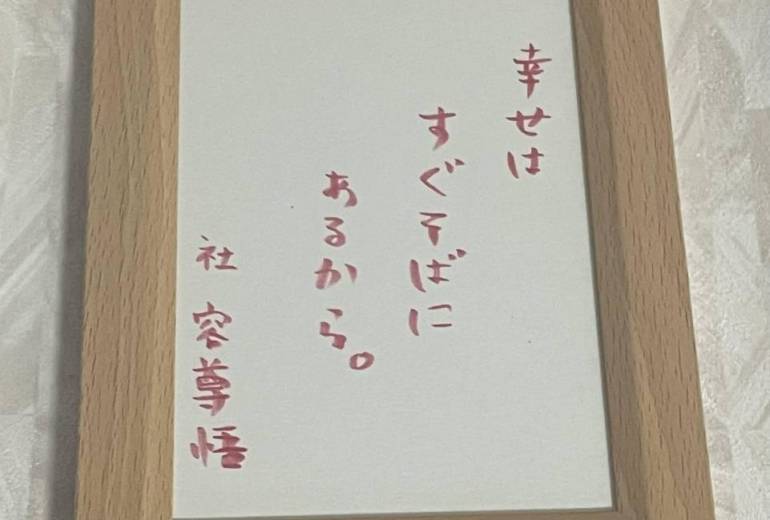 幸せは
すぐそばに
あるから。
社 容尊悟